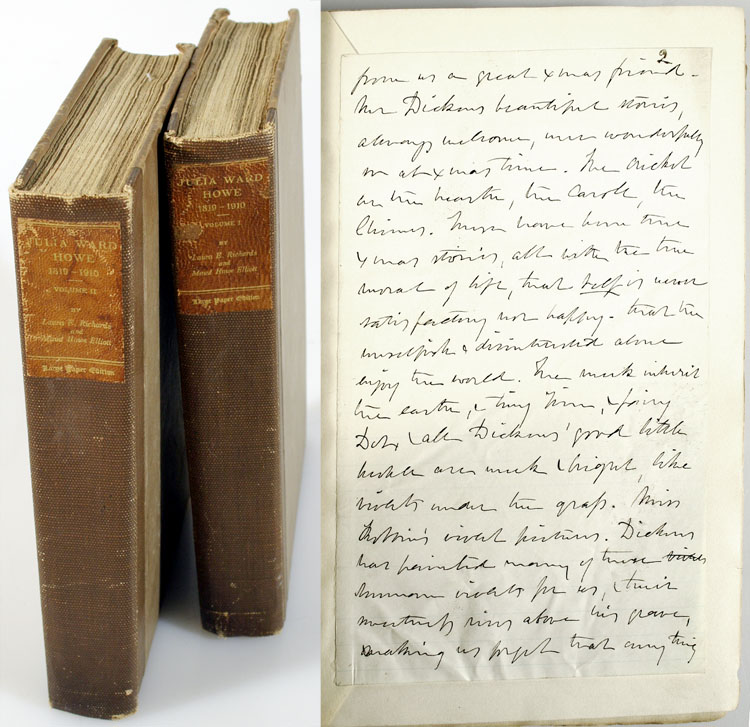 JULIA WARD
HOWE
1819–1910
VOLUME II
BY
Laura E. Richards
and
Maud Howe Elliott
Large Paper Edition
JULIA WARD
HOWE
1819–1910
VOLUME I
BY
Laura E. Richards
and
Maud Howe Elliott
Large Paper Edition
2
from us a great Xmas friend.
Mr Dickens beautiful stories,
always welcome, were wonderfully
so at Xmas time. The Cricket
on the hearth, the Carol, the
Chimes. These have been true
Xmas stories, all with the true
moral of life, that self is never
satisfactory nor happy. That the
unselfish & disinterested alone
enjoy the world. The meek inherit
the earth, & tiny Tim, & fairy
Dot, & all Dickens' good little
people are meek & bright, like
violets under the grass. Miss
violet pictures. Dickens
has painted many of these
human violets for us, & their
sweetness rises above his grave,
making us forget that anything